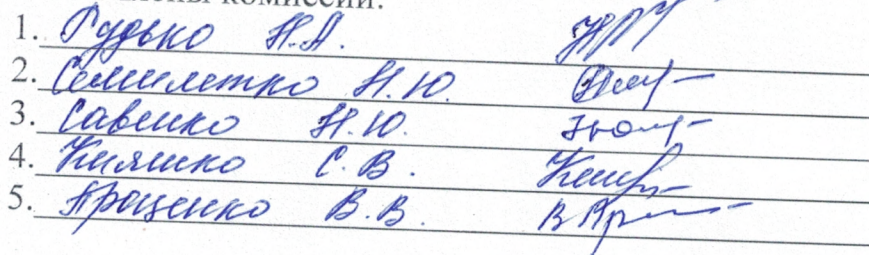 члены комиссии:
1. Рудько Н.А.
2. Семилетко Н.Ю.
3. Савенко Н.Ю.
4. Кияшко С.В.
5. Проценко В.В.